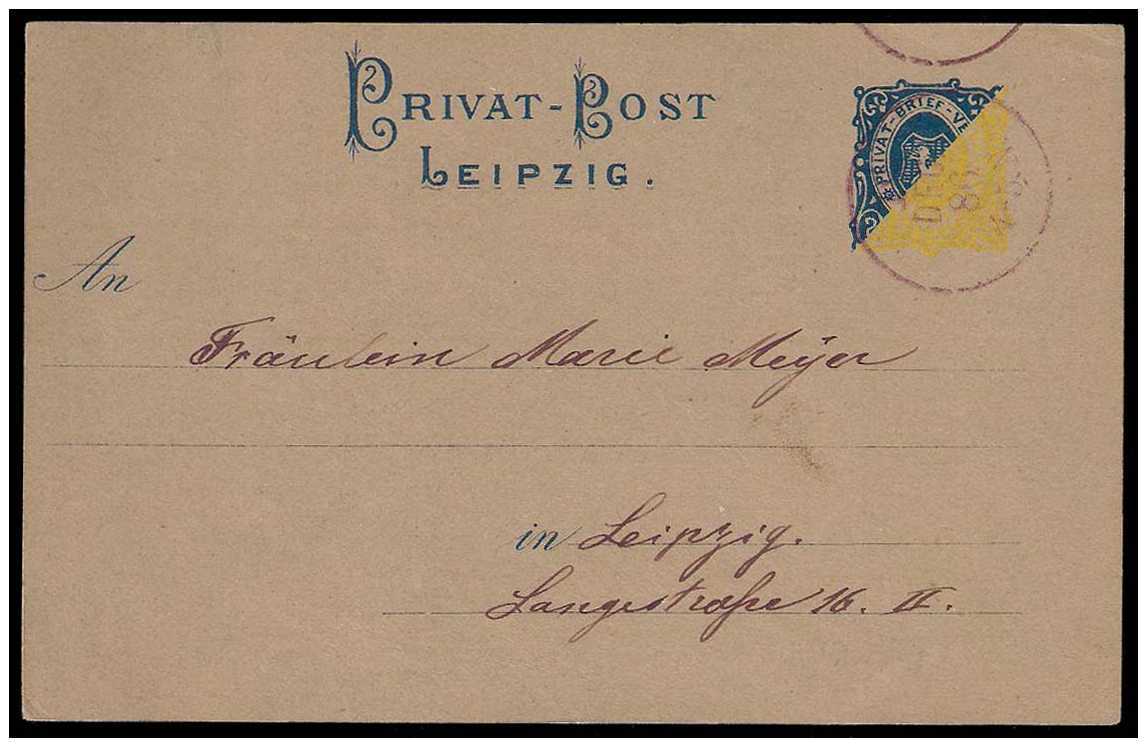 PRIVAT-POST
LEIPZIG.
PRIVAT-BRIEF-VE
DEC
86
An
Fräulein Marie Meÿer
in Leipzig.
Langestraße 16. II.